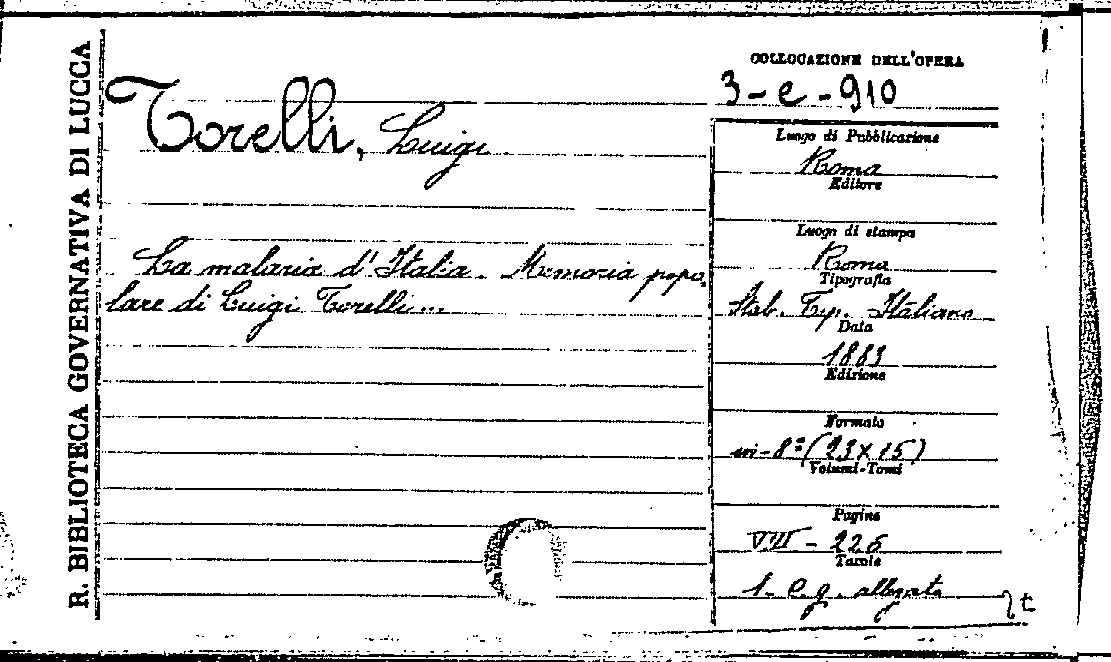 R. BIBLIOTECA GOVERNATIVA DI LUCCA
Torelli, Luigi
La malaria d'Italia. Memoria popo-
lare di Luigi Torelli...
COLLOCAZIONE DELL'OPERA
3-e-910
Luogo di Pubblicazione
Roma
Editore
Luogo di stampa
Roma
Tipografia
Stab. Tip. Italiano
Data
1883
Edizione
Formato
in-8º (23x15)
Volumi-Tomi
Pagine
VIII - 226
Tavole
1. c. g. allegata